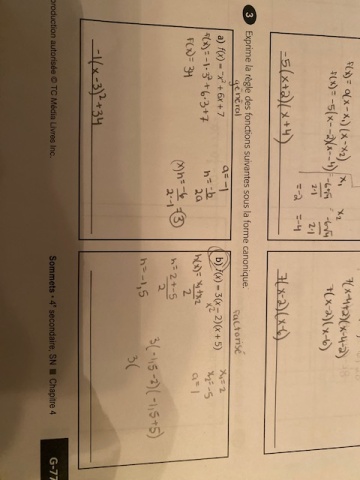 f(x) = a(x-x₁)(x-x₂)
f(x) = -5(x--2)(x--4)
x₁
x₂
= -2
= -4
-5(x+2)(x+4)
7(x-4+2)(x-4-2)
7(x-2)(x-6)
7(x-2)(x-6)
3 Exprime la règle des fonctions suivantes sous la forme canonique.
général
a) f(x) = -x² + 6x + 7
f(x) = -1·3² + 6·3 + 7
f(x) = 34
a = -1
h = -b/2a
h = -6/2·-1 = 3
-1(x-3)² + 34
factorisé
b) f(x) = 3(x - 2)(x + 5)
x₁ = 2
x₂ = -5
a = 1
h = 2+-5/2
h = -1,5
3(-1,5-2)(-1,5+5)
3(
production autorisée © TC Média Livres Inc.
Sommets • 4ᵉ secondaire, SN ■ Chapitre 4
G-77